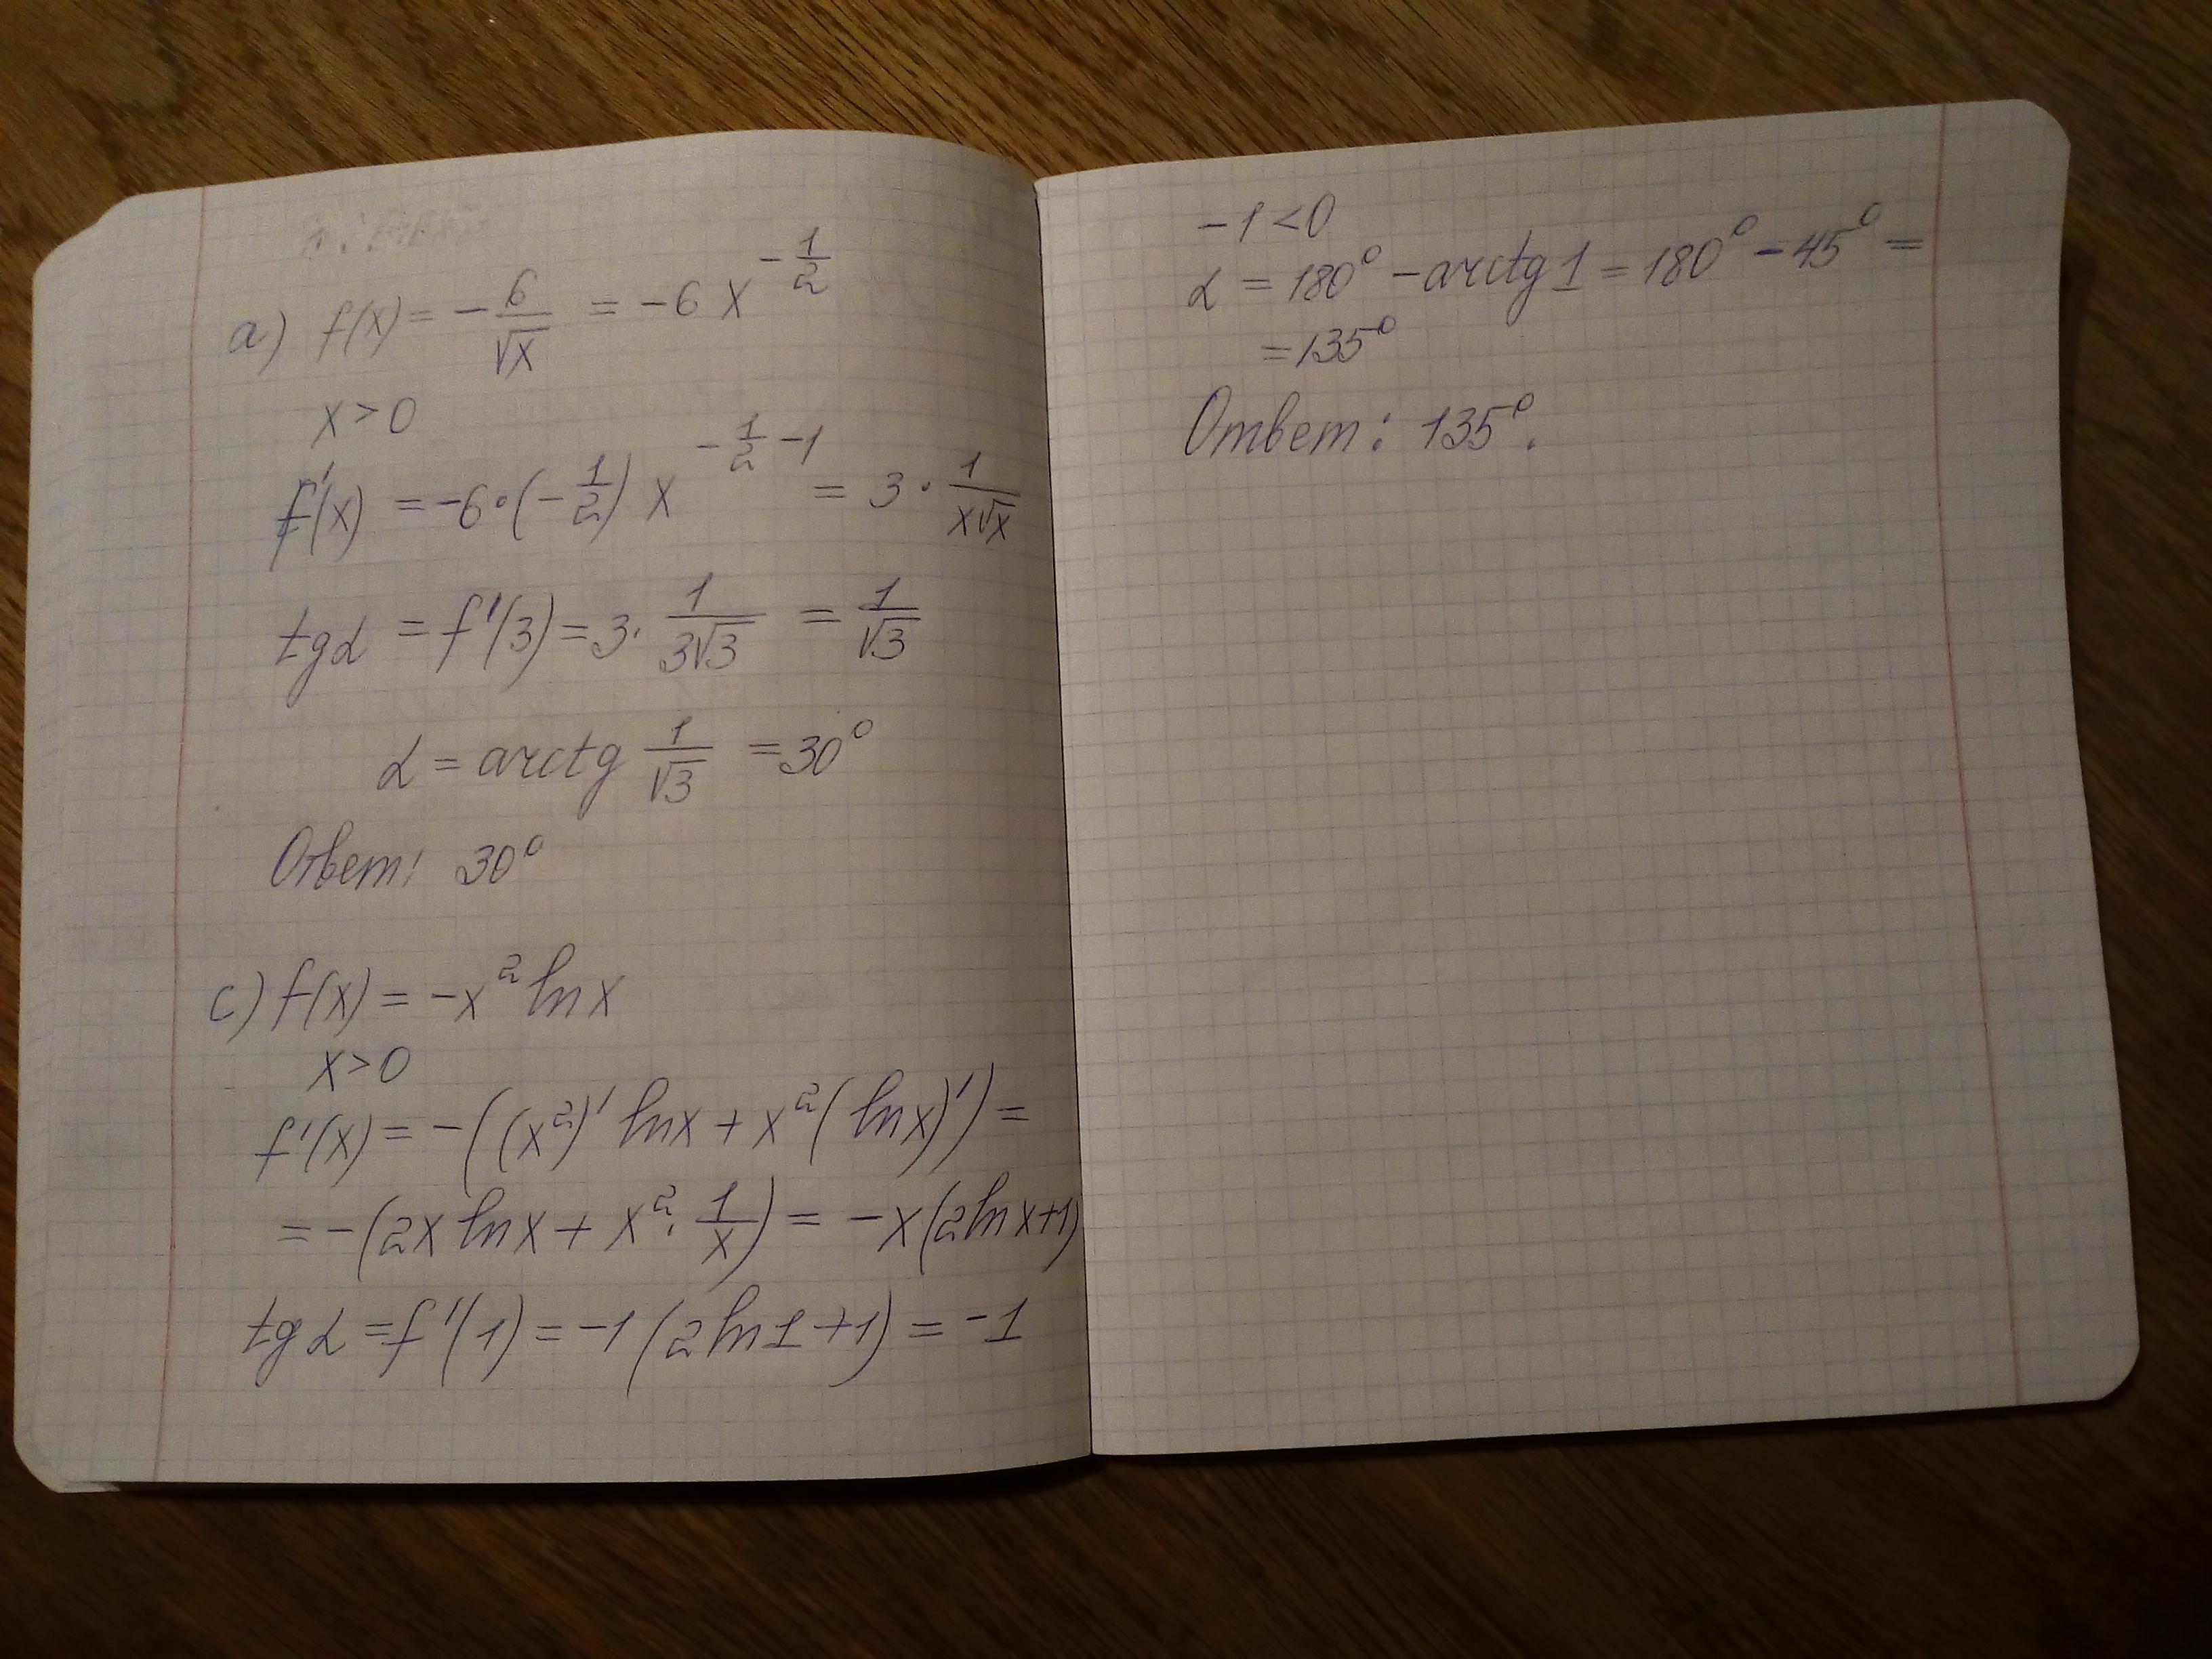 a) f(x) = -6/√x = -6x^(-1/2)
x > 0
f'(x) = -6·(-1/2)x^(-1/2-1) = 3·1/(x√x)
tgα = f'(3) = 3·1/(3√3) = 1/√3
α = arctg 1/√3 = 30°
Ответ: 30°
c) f(x) = -x² ln x
x > 0
f'(x) = -((x²)' ln x + x²(ln x)') =
= -(2x ln x + x²·1/x) = -x(2 ln x + 1)
tg α = f'(1) = -1(2 ln 1 + 1) = -1
-1 < 0
α = 180° - arctg 1 = 180° - 45° =
= 135°
Ответ: 135°.